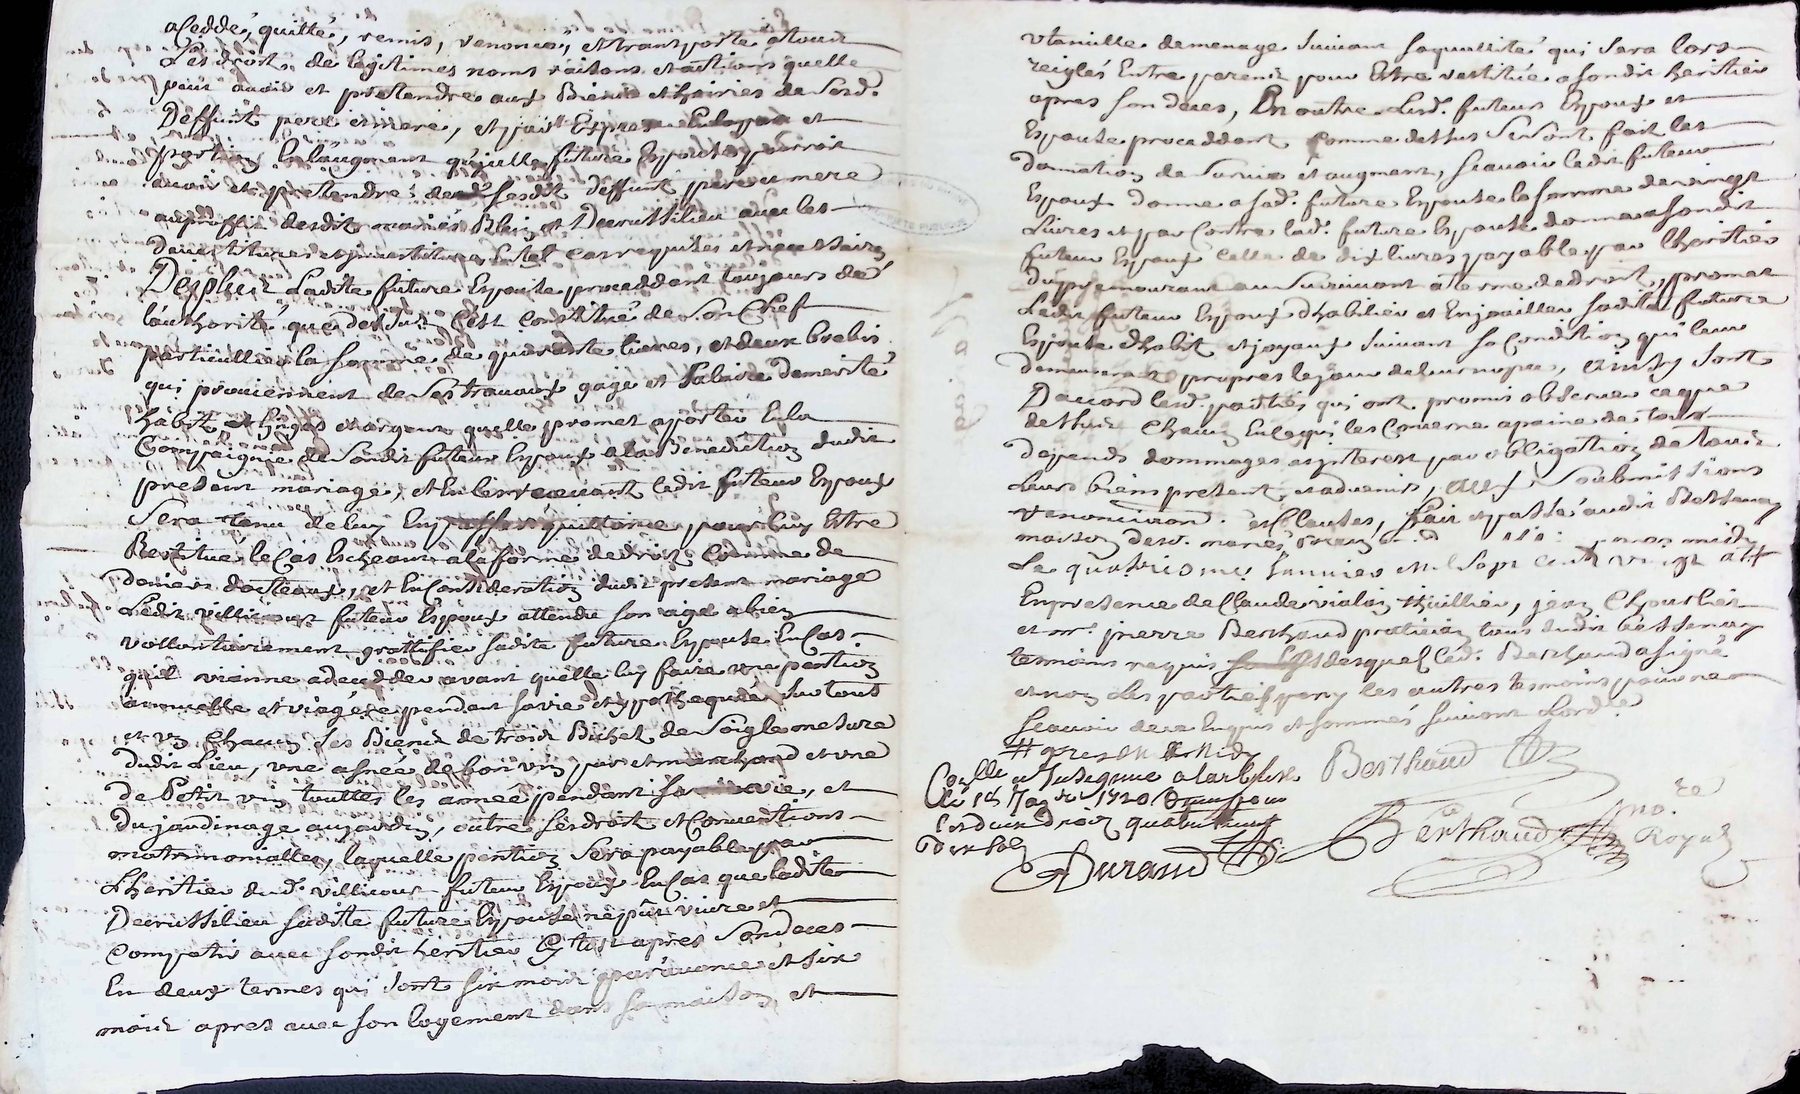 a Ceddé, quitté, remis, renoncé, et transporté a tous
Les droits de legitimes noms raisons et actions quelle
peut avoir et pretendre aux Biens et hoiries de Sesd.
Deffunt pere et mere, et par Expres
portion En l'augment qu'icelle future Espouse pourroit
avoir et pretendre de Sesdit deffunt pere et mere
au proffit desdit mariés Blein et Decrussilieu avec les
devestitures et investitures En tel cas requises et necessaires
De plus Ladite future Espouse proceddant toujours de
l'authorité que dessus C'est Constitué de Son Chef
particullier la Somme de quarante livres, et deux brebis
qui proviennent de Ses travaux gage et Salaire demerité
habit et linges et argent quelle promet aporter En la
Compaignie de Sondit futeur Espoux a la Benediction dudit
present mariage, et En les recevant ledit futeur Espoux
Sera tenu de luy En passer quittance pour luy Estre
Restitué le Cas Escheant a la forme de droit Comme de
deniers dosteaux, et En Consideration dudit present mariage
Ledit villicour futeur Espoux attendu son age a bien
vollontairement grattifié sadite future Espouse En Cas
qu'il vienne a decedder avant quelle luy faire une pention
annuelle et viagere pendant sa vie et ypothequée Sur tous
et un Chacun Ses Biens de trois Bichet de Soigle mesure
dudit Lieu, une asnée de bon vin pur et marchand et une
de Petit vin touttes les année pendant sa vie, et
du jardinage au jardin, outre Ses droit et Conventions
matrimonialles, laquelle pention Sera payable par
L'heritier dud. villicour futeur Espoux En Cas que ladite
Decrussilieu sadite future Espouse ne pût vivre et
Compatir avec sondit heritier Et tost apres Son deces
En deux termes qui sont six mois par avance et six
mois apres avec son logement dans sa maison et
utancille de menage suivant sa quallité qui sera lors
reiglés Entre parents pour Estre restitué a sondit heritier
apres son deces, En outre Lesd. futeurs Espoux et
Espouse proceddant Comme dessus Se Sont fait les
donnation de Survie et augment, Scavoir ledit futeur
Espoux donne a sad. future Espouse la somme de vingt
Livres et par Contre lad. future Espouse donne a sondit
futeur Espoux Celle de dix livres payable par l'heritier
du premourant au Survivant a terme de droit, promet
Ledit futeur Espoux d'habilier et Enjouailler sadite future
Espouse d'habit et joyaux suivant sa Condition qui leur
demeureront propres le jour de leur nopce, ainsy sont
D'accord lesd. parties qui ont promis observer ce que
dessus Chacun En ce qui les Concerne a peine de tous
depends dommages et interest par obligation de tous
Leurs biens present et advenirs, aux Soubmissions
renonciation et Clauses, fait et passé audit Bessenay
maison desd. mariés
Le quatriesme Janvier mil Sept Cent vingt
En presence de Claude vialon thuillier, jean Chourlier
et mr. pierre Berthaud pratitien tous dudit Bessenay
tesmoins requis desquel led. Berthaud a signé
et non Les parties ny les autres tesmoins pour ne
Scavoir de ce Enquis et sommés suivant L'ordce
# apres Midy
Berthaud
Con.llé et Insignué a larbresle
le 18 Janvier 1720
Les deux droit
dix sols
Durand
Berthaud
no.re
Royal